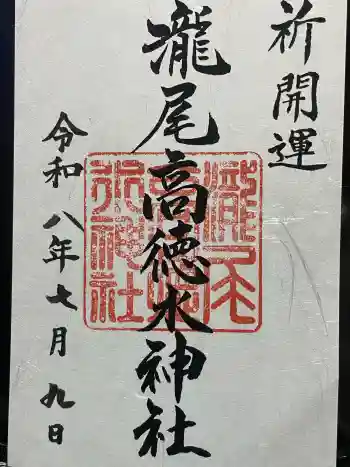 祈開運
瀧尾高徳水神社
令和八年七月九日
瀧尾
高徳
水神社